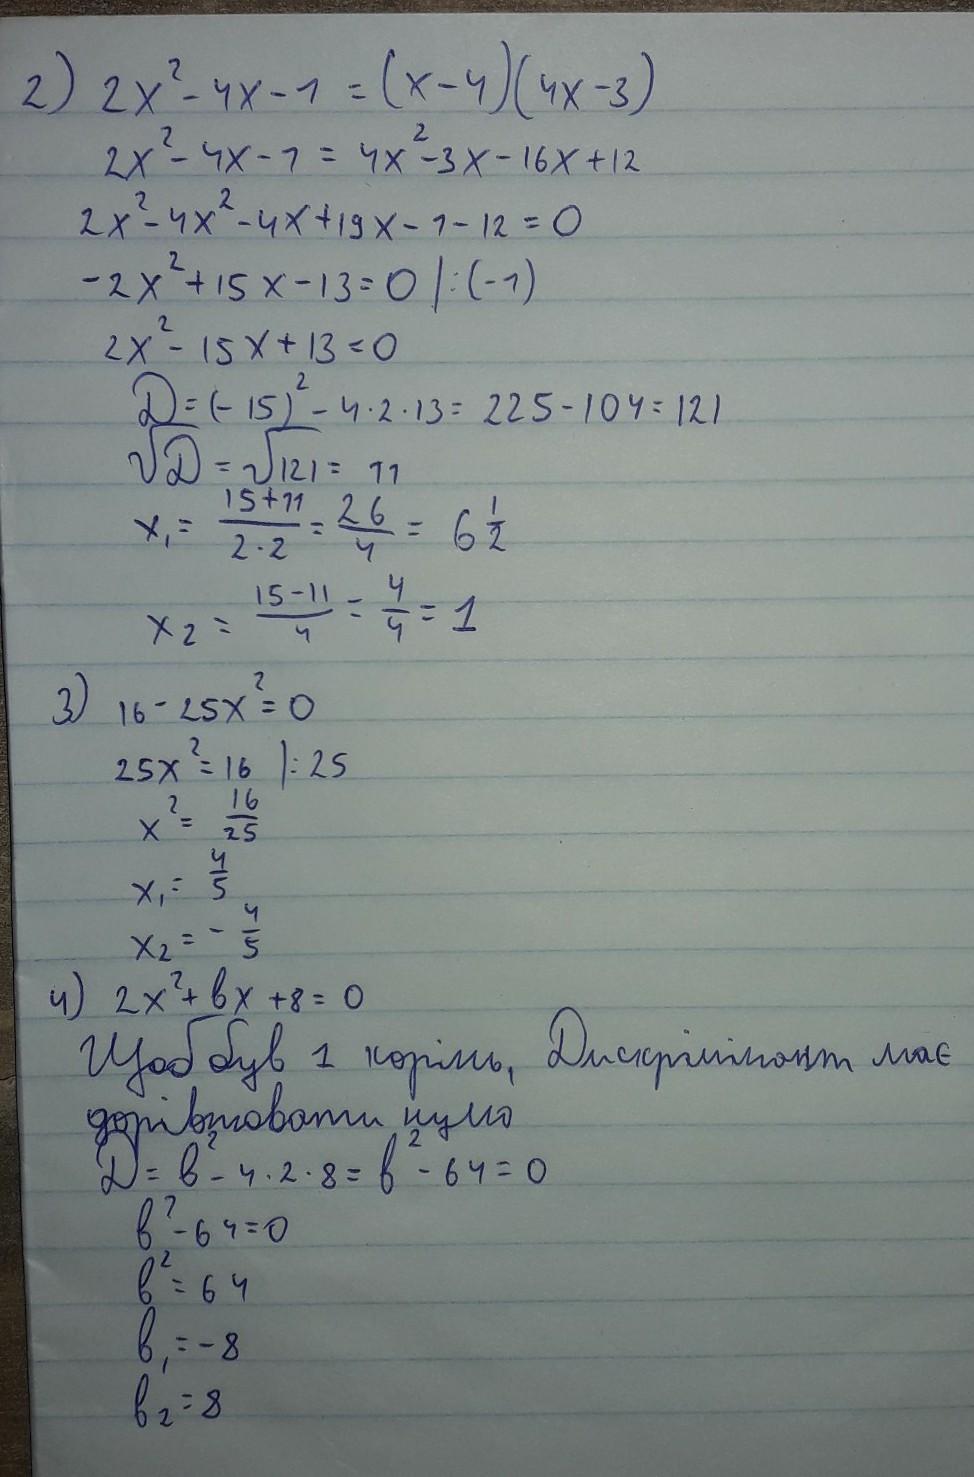 2) 2x² - 4x - 1 = (x - 4)(4x - 3)
2x² - 4x - 1 = 4x² - 3x - 16x + 12
2x² - 4x² - 4x + 19x - 1 - 12 = 0
-2x² + 15x - 13 = 0 |:(-1)
2x² - 15x + 13 = 0
D = (-15)² - 4·2·13 = 225 - 104 = 121
√D = √121 = 11
x₁ = (15+11)/(2·2) = 26/4 = 6 1/2
x₂ = (15-11)/4 = 4/4 = 1
3) 16 - 25x² = 0
25x² = 16 |:25
x² = 16/25
x₁ = 4/5
x₂ = - 4/5
4) 2x² + bx + 8 = 0
Щоб був 1 корінь, Дискримінант має
дорівнювати нулю
D = b² - 4·2·8 = b² - 64 = 0
b² - 64 = 0
b² = 64
b₁ = -8
b₂ = 8